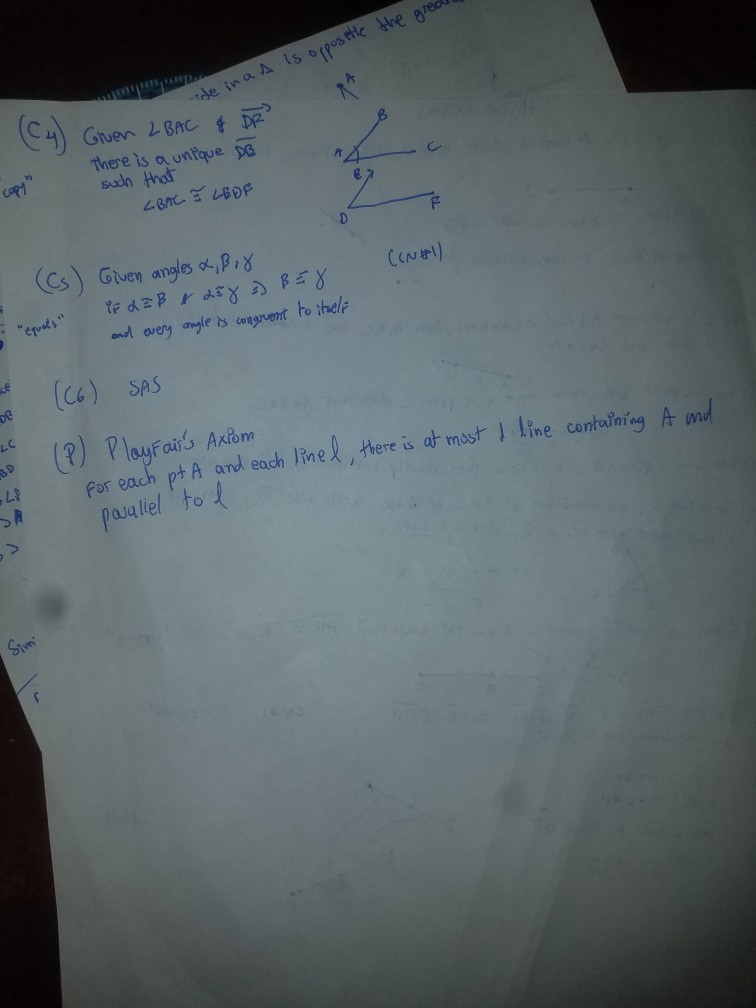 ide in a Δ is opposite the grea
(C4) Given ∠BAC & DF
there is a unique DE
such that
∠BAC ≅ ∠EDF
A
B
A
C
E
D
F
copy"
(C5) Given angles α, β, γ
(CN#1)
if α ≅ β & α ≅ γ ⇒ β ≅ γ
and every angle is congruent to itself
"equals"
(C6) SAS
(P) Playfair's Axiom
For each pt A and each line l, there is at most 1 line containing A and
parallel to l
Simi